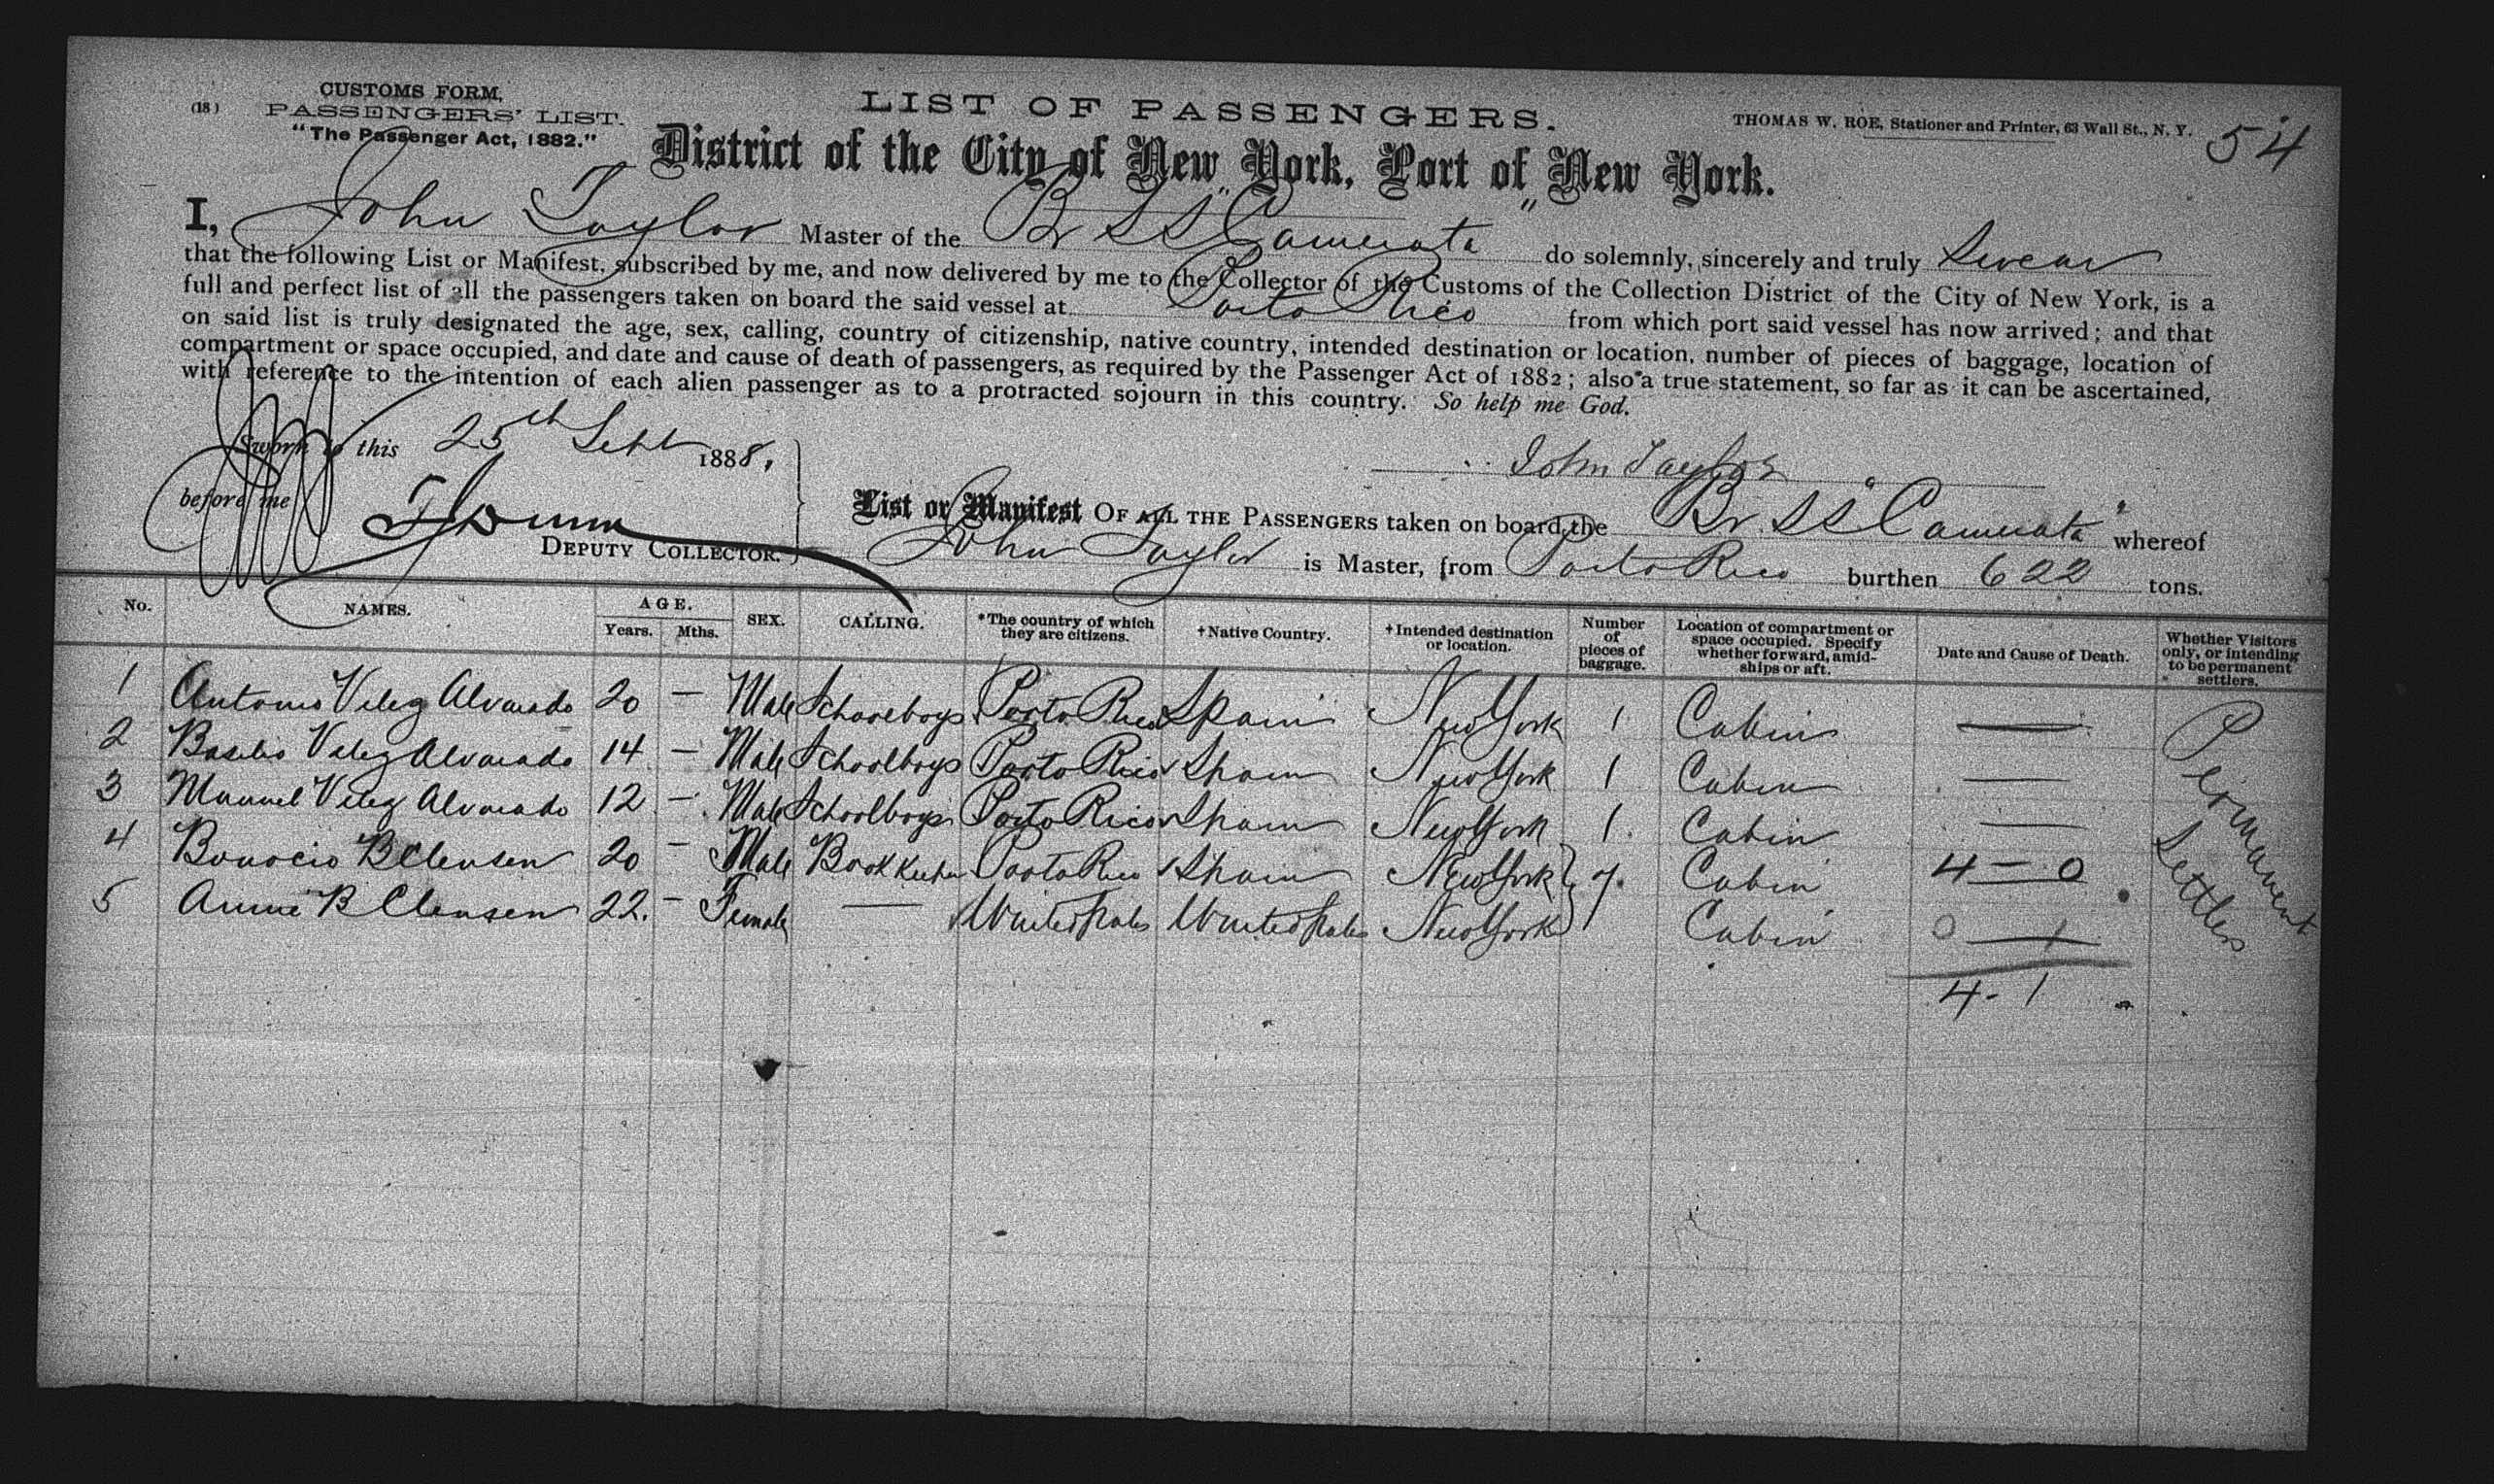 CUSTOMS FORM,
(18) PASSENGERS' LIST.
"The Passenger Act, 1882."
LIST OF PASSENGERS.
THOMAS W. ROE, Stationer and Printer, 63 Wall St., N. Y.
54
District of the City of New York, Port of New York.
I, John Taylor Master of the Br "SS Camerata" do solemnly, sincerely and truly Swear
that the following List or Manifest, subscribed by me, and now delivered by me to the Collector of the Customs of the Collection District of the City of New York, is a
full and perfect list of all the passengers taken on board the said vessel at Porto Rico from which port said vessel has now arrived; and that
on said list is truly designated the age, sex, calling, country of citizenship, native country, intended destination or location, number of pieces of baggage, location of
compartment or space occupied, and date and cause of death of passengers, as required by the Passenger Act of 1882; also a true statement, so far as it can be ascertained,
with reference to the intention of each alien passenger as to a protracted sojourn in this country. So help me God.
Sworn to this 25th Sept 1888,
John Taylor
before me
DEPUTY COLLECTOR.
List or Manifest OF ALL THE PASSENGERS taken on board the Br. "SS Camerata" whereof
John Taylor is Master, from Porto Rico burthen 622 tons.
No. NAMES. AGE. Years. Mths. SEX. CALLING. *The country of which they are citizens. +Native Country. +Intended destination or location. Number of pieces of baggage. Location of compartment or space occupied. Specify whether forward, amidships or aft. Date and Cause of Death. Whether Visitors only, or intending to be permanent settlers.
1 Antonio Velez Alvarado 20 — Male Schoolboys Porto Rico Spain New York 1 Cabin —
2 Basilio Velez Alvarado 14 — Male Schoolboys Porto Rico Spain New York 1 Cabin —
3 Manuel Velez Alvarado 12 — Male Schoolboys Porto Rico Spain New York 1. Cabin —
4 B Clensen 20 — Male Book Keeper Porto Rico Spain New York 7. Cabin 4 — 0
5 Annie B Clensen 22. — Female — United States United States New York Cabin 0 — 1
4 - 1
Permanent
Settlers